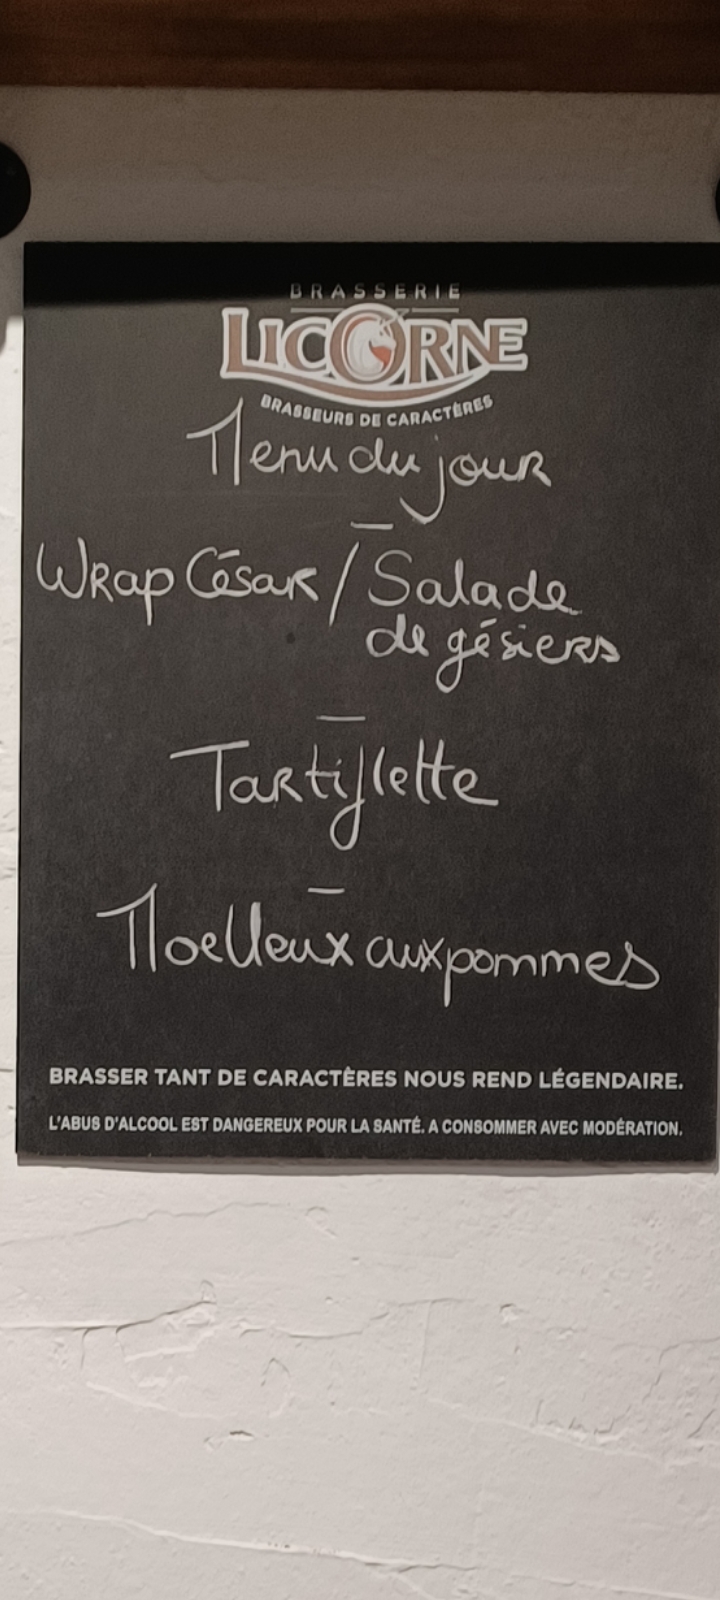 BRASSERIE
LICORNE
BRASSEURS DE CARACTÈRES
Menu du jour
Wrap César / Salade
de gésiers
Tartiflette
Moelleux aux pommes
BRASSER TANT DE CARACTÈRES NOUS REND LÉGENDAIRE.
L'ABUS D'ALCOOL EST DANGEREUX POUR LA SANTÉ. A CONSOMMER AVEC MODÉRATION.